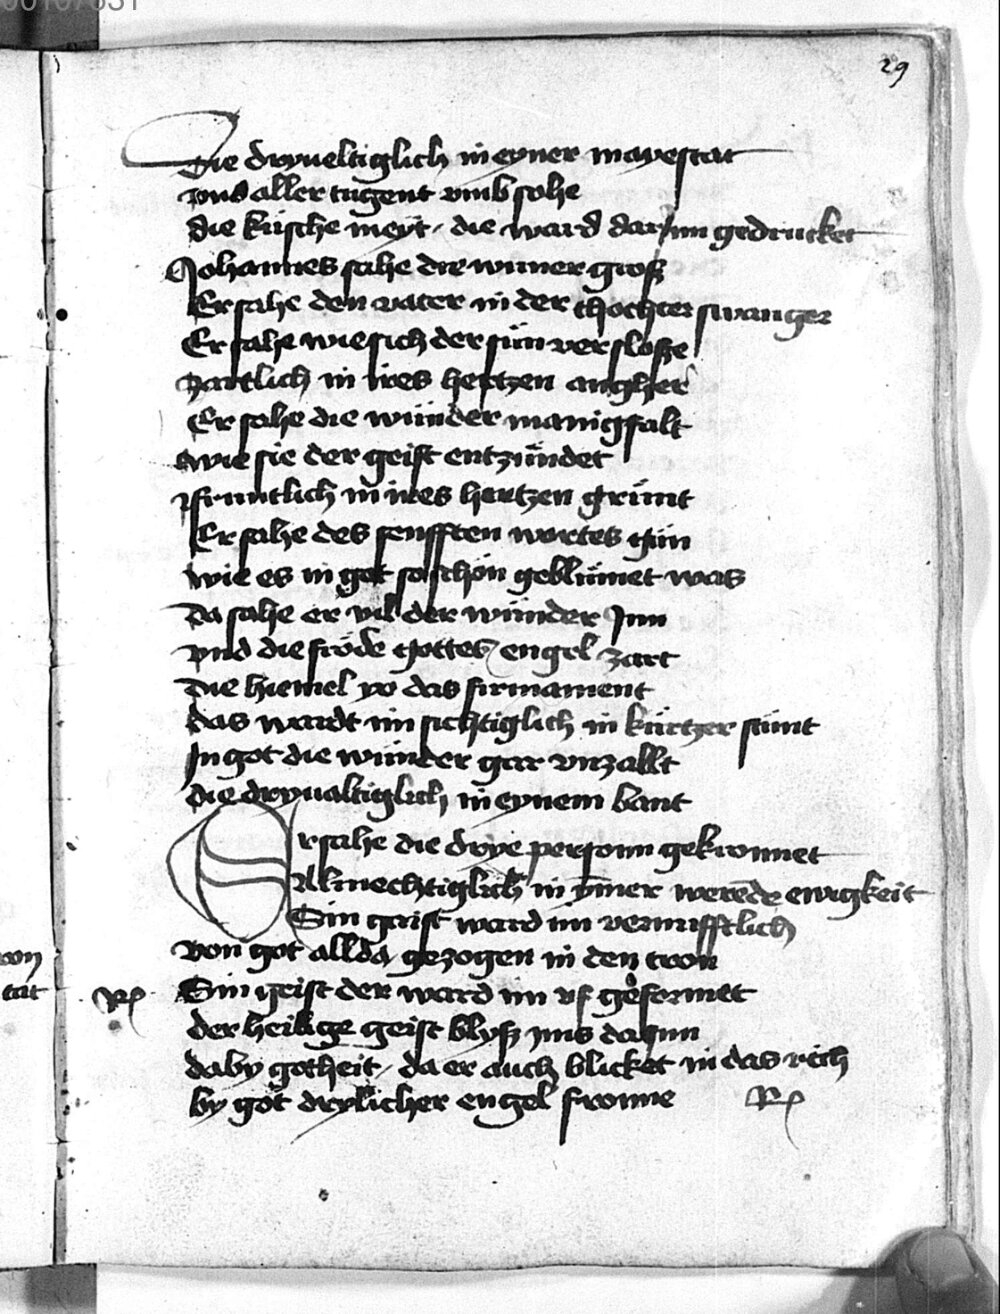 29
Die dryueltiglich in eyner mayestat
vns aller tugent vmb sohe
die küsche meyt / die ward dar jnn gedrucket
Johannes sahe die wunner groß
Er sahe den vater in der thochter swanger
Er sahe wie sich der sün versloße
Zartlich in ires hertzen angher
Er sahe die wünder manigfalt
wie sie der geist entzündet
jn ires hertzen grünt
Er sahe des senfften wortes
wie es in got so schön geblümet was
Da sahe er vil der wünder Jnn
vnd die fröde gottes engel zart
Die hiemel yo das firmament
das wardt im sichtiglich in kürtzer stünt
In got die wünder gar vnzallt
die dryualtiglich in eynem bant
Er sahe die drye personn gekronnet
Almechtiglich in ymer werede ewigkeit
Sin geist ward im vernüfftlich
von got allda gezogen in den tron
Sin geist der ward im vf geformet
der heilige geist blyß jms da jnn
daby gotheit / da er auch blicket in das rich
by got drylicher engel fronne